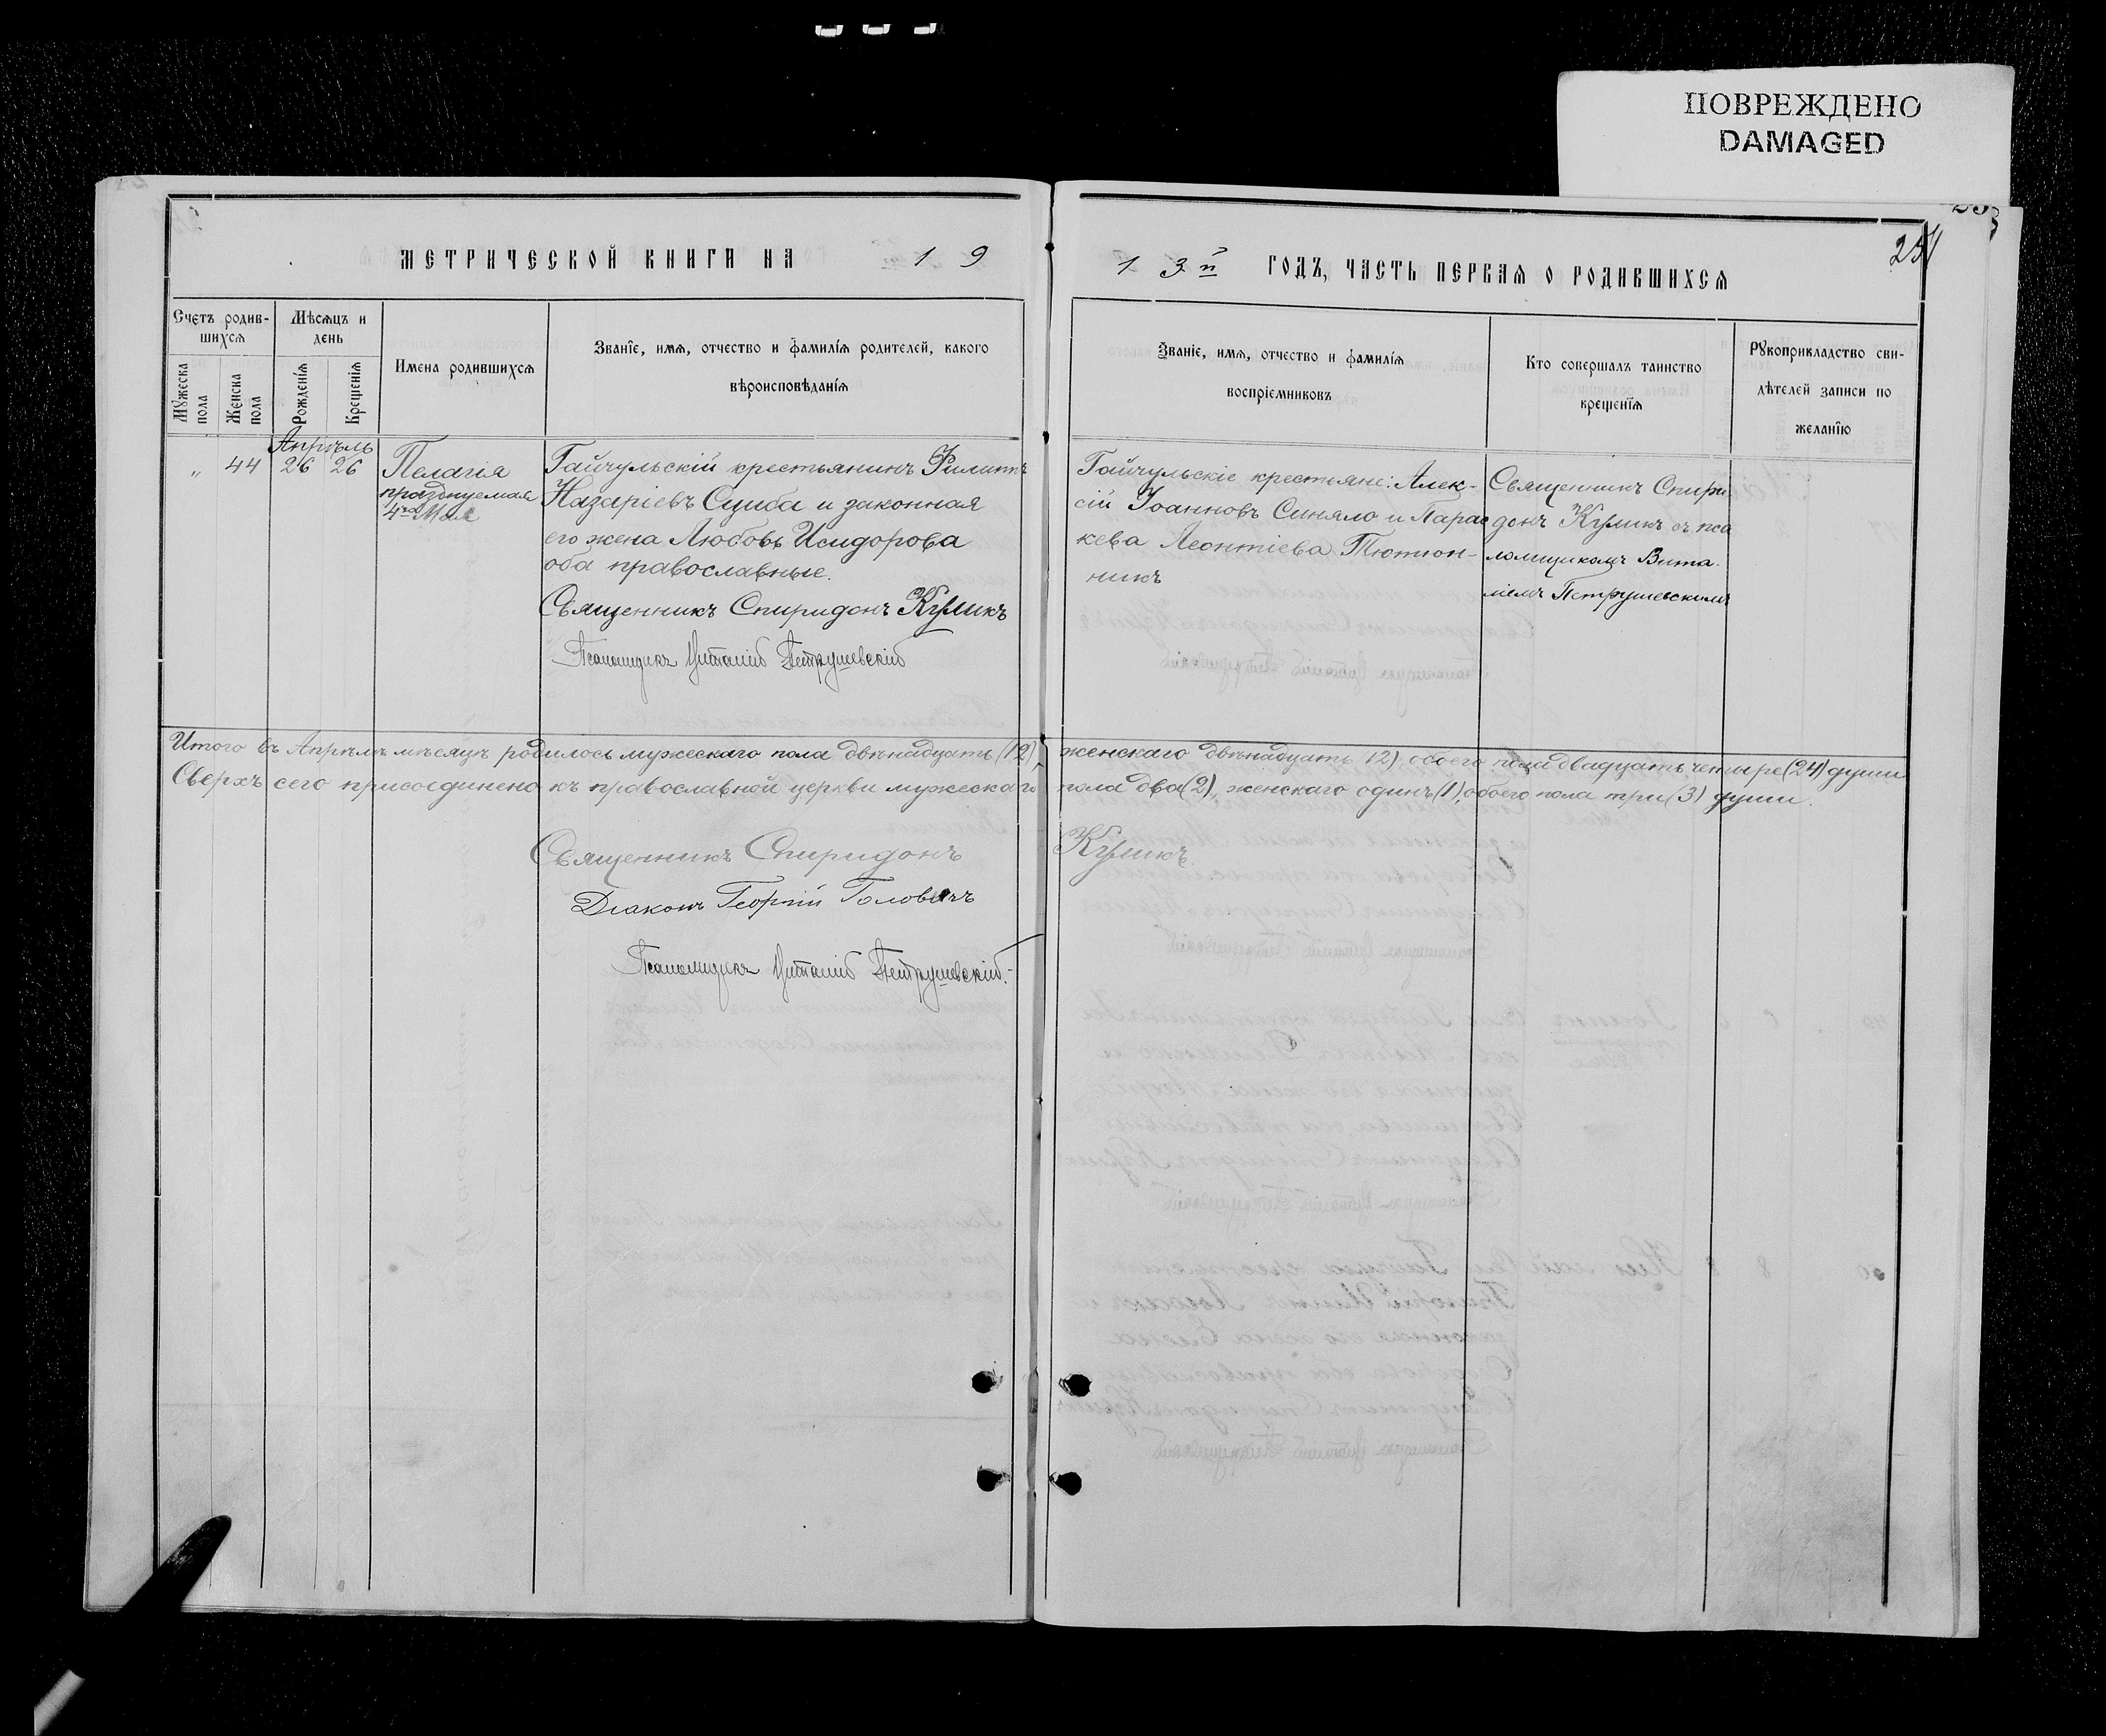 ПОВРЕЖДЕНО
DAMAGED
254
МЕТРИЧЕСКОЙ КНИГИ НА 1 9
1 3й ГОДЪ, ЧАСТЬ ПЕРВАЯ О РОДИВШИХСЯ
Счетъ родив-
шихся
Мѣсяцъ и
день
Мужеска
пола
Женска
пола
Рожденія
Крещенія
Имена родившихся
Званіе, имя, отчество и фамилія родителей, какого
вѣроисповѣданія
Званіе, имя, отчество и фамилія
воспріемниковъ
Кто совершалъ таинство
крещенія
Рукоприкладство сви-
дѣтелей записи по
желанію
Апрѣль
„ 44 26 26
Пелагія
празднуемая
4го Мая
Гайчульскій крестьянинъ Филиппъ
Назаріевъ Сциба и законная
его жена Любовь Исидорова
оба православные.
Священникъ Спиридонъ Куликъ
Псаломщикъ Виталій Петрушевскій
Гайчульскіе крестьяне: Алек-
сій Іоанновъ Синяло и Парас
кева Леонтіева Тютюн-
никъ
Священникъ Спири
донъ Куликъ съ пса
ломщикомъ Вита-
ліемъ Петрушевскимъ
Итого въ Апрѣлѣ мѣсяцѣ родилось мужескаго пола двѣнадцать (12), женскаго двѣнадцать (12) обоего пола двадцать четыре (24) души
Сверхъ сего присоединено къ православной церкви мужескаго пола два (2), женскаго одинъ (1), обоего пола три (3) души.
Священникъ Спиридонъ Куликъ.
Діаконъ Георгій Головачъ
Псаломщикъ Виталій Петрушевскій.